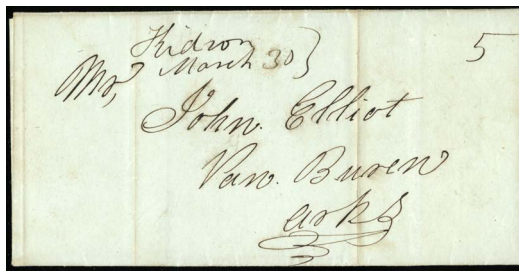 Kidron
March 30 }
5
Mr,
John. Elliot
Van. Buren
arks